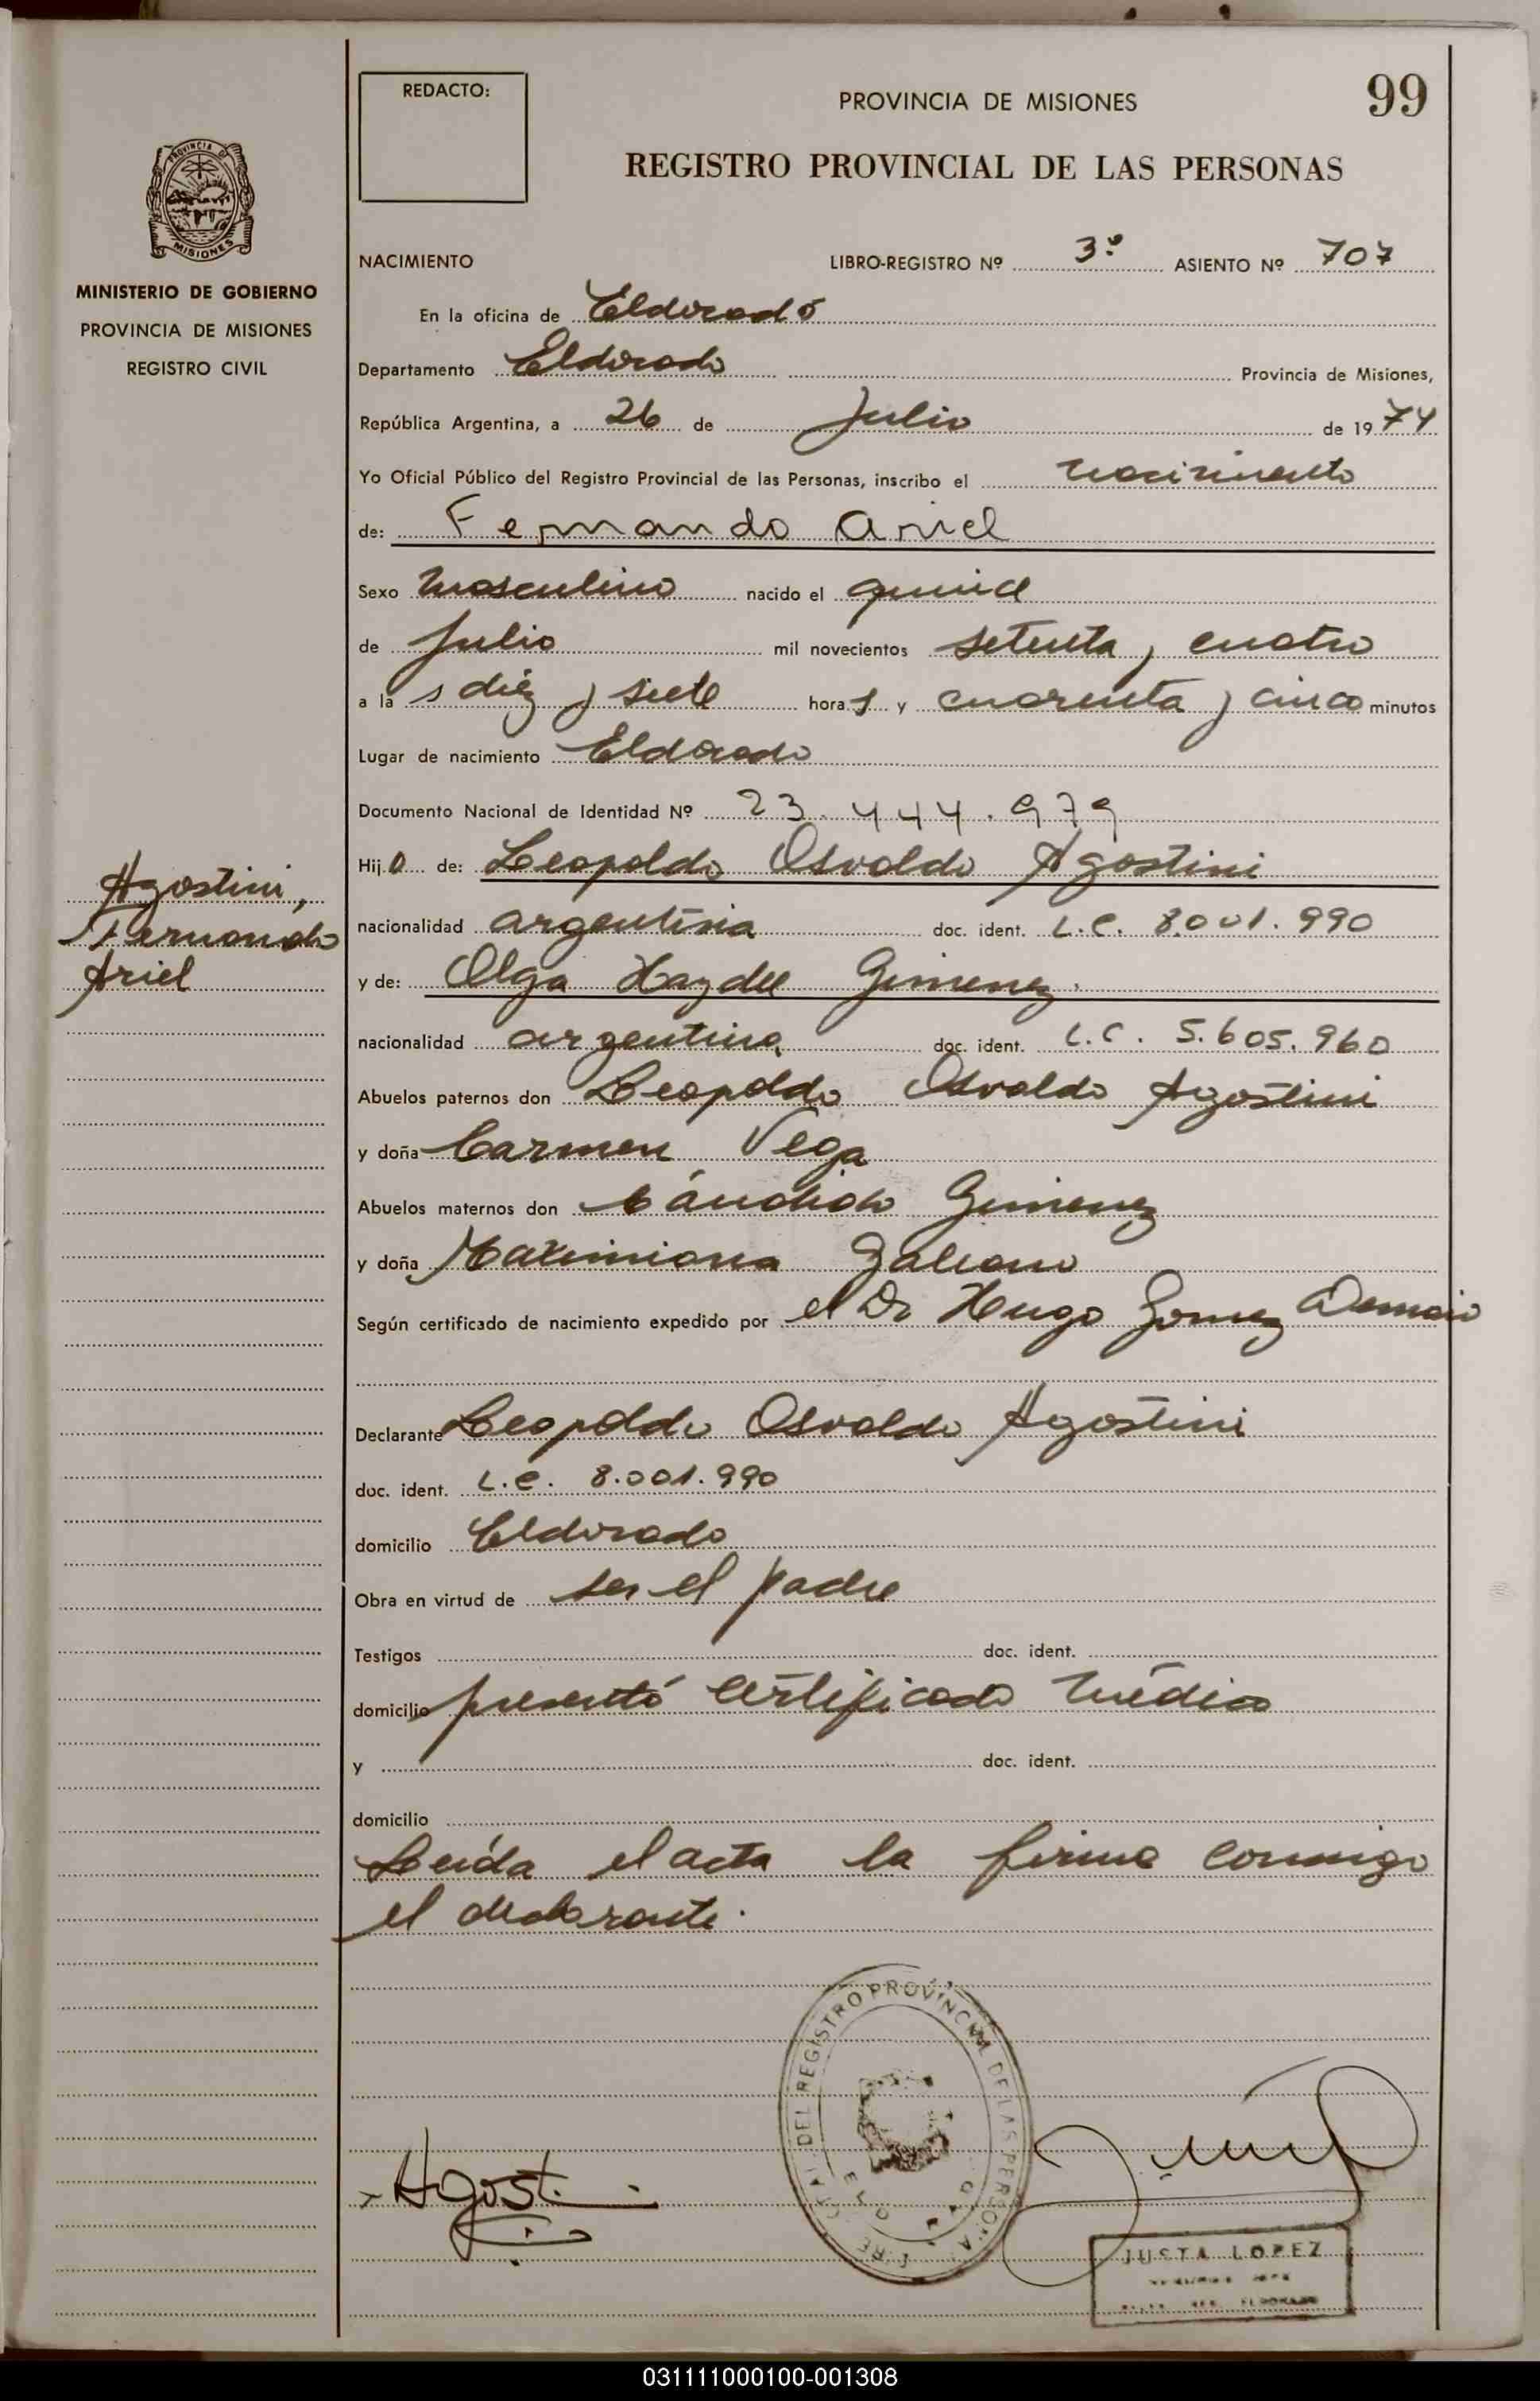 REDACTO:
PROVINCIA DE MISIONES
99
REGISTRO PROVINCIAL DE LAS PERSONAS
PROVINCIA DE
MISIONES
MINISTERIO DE GOBIERNO
PROVINCIA DE MISIONES
REGISTRO CIVIL
NACIMIENTO LIBRO-REGISTRO Nº 3º ASIENTO Nº 707
En la oficina de Eldorado
Departamento Eldorado Provincia de Misiones,
República Argentina, a 26 de Julio de 1974
Yo Oficial Público del Registro Provincial de las Personas, inscribo el nacimiento
de: Fernando Ariel
Sexo masculino nacido el quince
de Julio mil novecientos setenta y cuatro
a las diez y siete horas y cuarenta y cinco minutos
Lugar de nacimiento Eldorado
Documento Nacional de Identidad Nº 23.444.979
Hijo de: Leopoldo Osvaldo Agostini
Agostini,
Fernando
Ariel
nacionalidad argentina doc. ident. L.E. 8.001.990
y de: Olga Haydee Gimenez.
nacionalidad argentina doc. ident. L.C. 5.605.960
Abuelos paternos don Leopoldo Osvaldo Agostini
y doña Carmen Vega
Abuelos maternos don Cándido Gimenez
y doña Maximiana Galeano
Según certificado de nacimiento expedido por el Dr Hugo Gomez Demaio
Declarante Leopoldo Osvaldo Agostini
doc. ident. L.E. 8.001.990
domicilio Eldorado
Obra en virtud de ser el padre
Testigos doc. ident.
domicilio presentó certificado médico
y doc. ident.
domicilio
Leída el acta la firma conmigo
el declarante.
DEL REGISTRO PROVINCIAL DE LAS PERSONAS
ELDORADO
Agosti
JUSTA LOPEZ
ELDORADO
031111000100-001308